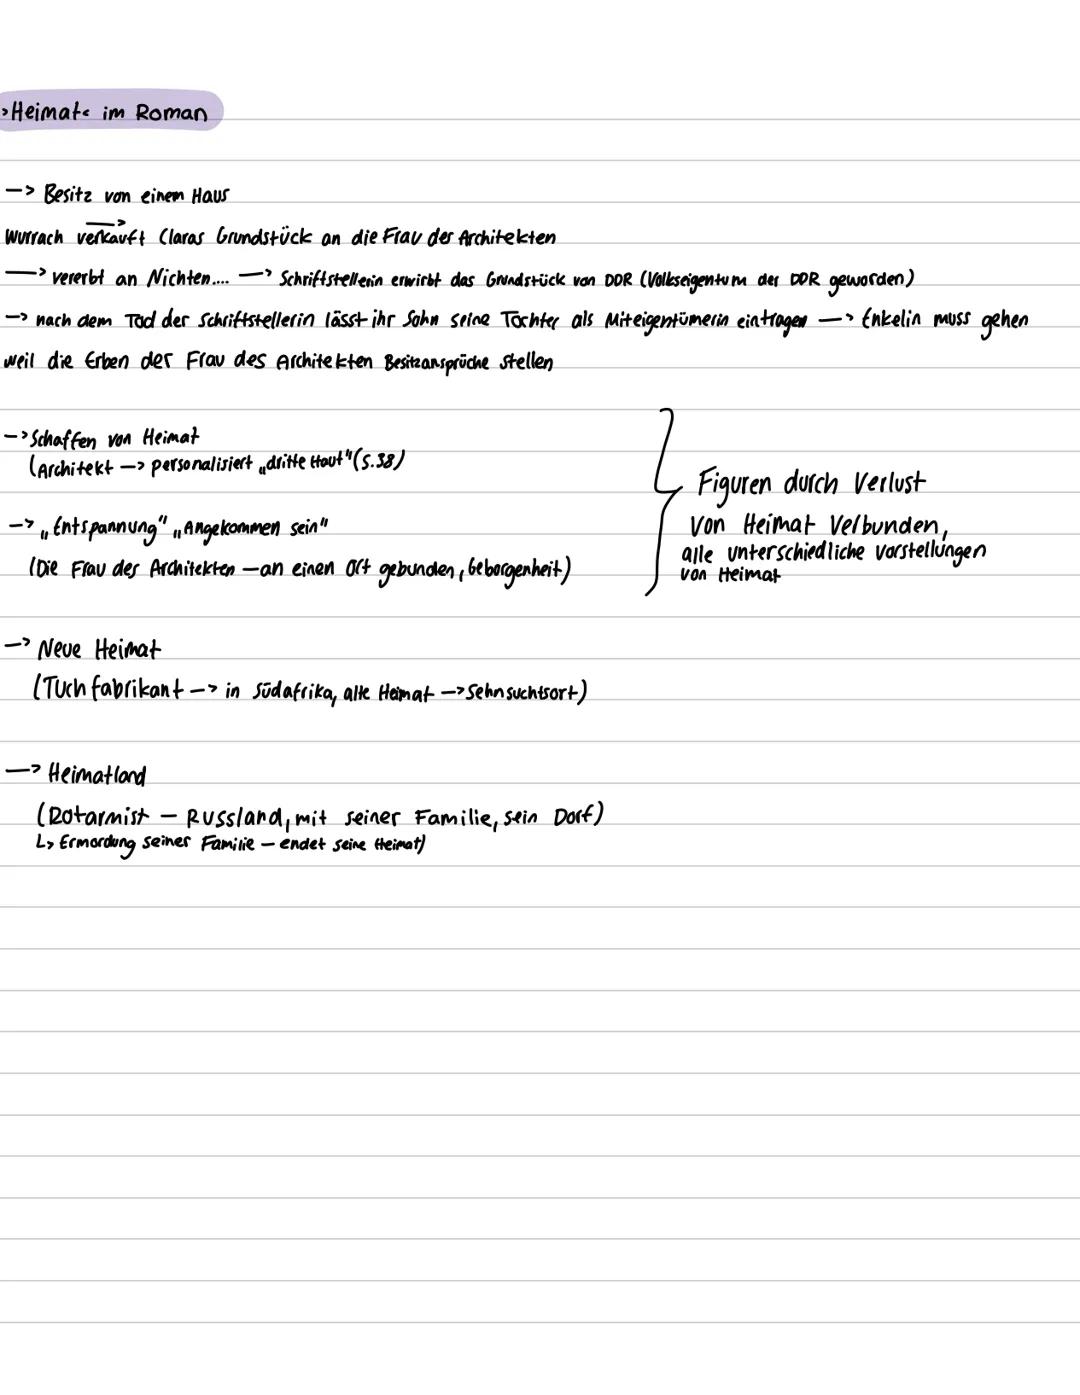 >Heimat< im Roman
—> Besitz von einem Haus
Wurrach verkauft Claras Grundstück an die Frau der Architekten
—> vererbt an Nichten.... —> Schriftstellerin erwirbt das Grundstück von DDR (Volkseigentum der DDR geworden)
—> nach dem Tod der Schriftstellerin lässt ihr Sohn seine Tochter als Miteigentümerin eintragen —> Enkelin muss gehen
weil die Erben der Frau des Architekten Besitzansprüche stellen
—> Schaffen von Heimat
(Architekt —> personalisiert „dritte Haut" (S.38)
—> „Entspannung" „Angekommen sein"
(Die Frau des Architekten — an einen Ort gebunden, Geborgenheit)
Figuren durch Verlust
von Heimat verbunden,
alle unterschiedliche Vorstellungen
von Heimat
—> Neue Heimat
(Tuchfabrikant —> in Südafrika, alte Heimat —> Sehnsuchtsort)
—> Heimatland
(Rotarmist — Russland, mit seiner Familie, sein Dorf)
L> Ermordung seiner Familie — endet seine Heimat)